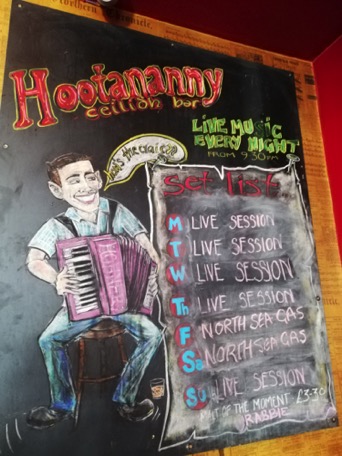 Hootananny
ceilidh bar
LIVE MUSIC
EVERY NIGHT
FROM 9.30PM
Set list
M LIVE SESSION
T LIVE SESSION
W LIVE SESSION
Th LIVE SESSION
F NORTH SEA GAS
Sa NORTH SEA GAS
Su LIVE SESSION
OF THE MOMENT £3.30
RABBIE